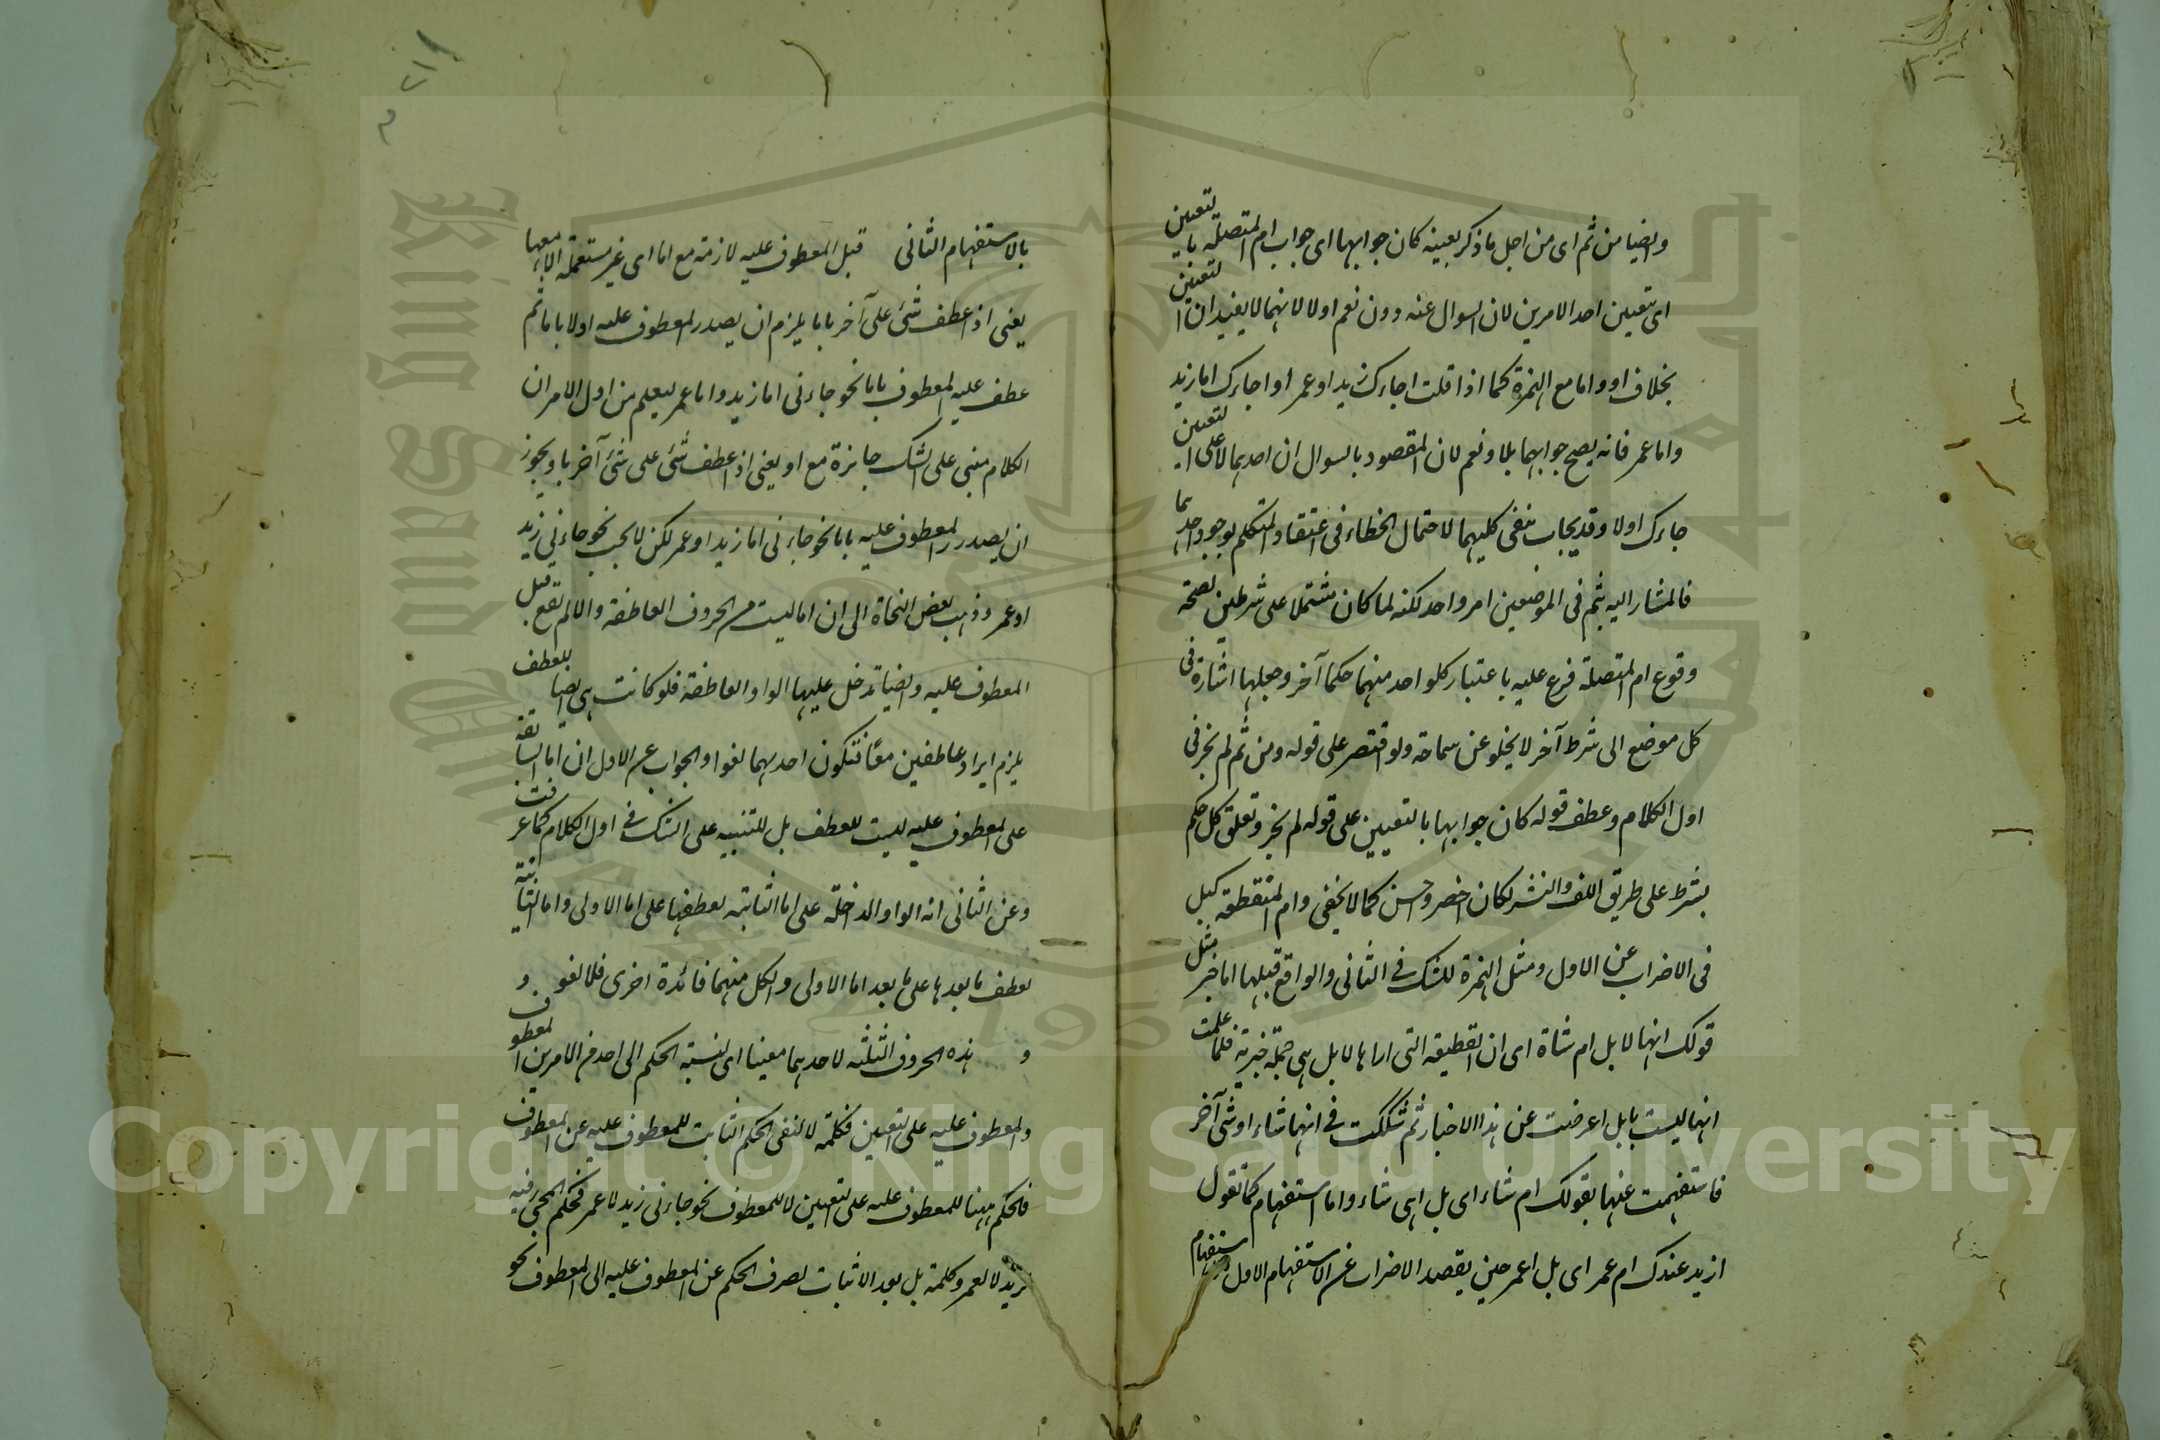 وايضا من ثم اى من اجل ما ذكر بعينه كان جوابها اى جواب ام المتصلة بالتعيين
اى بتعيين احد الامرين لان السوال عنه دون نعم اولا لانهما لا يفيدان التعيين
بخلاف او واما مع الهمزة كما اذا قلت اجاءك زيد او عمر او اجاءك اما زيد
واما عمر فانه يصح جوابهما بلا ونعم لان المقصود بالسوال ان احدهما لا على التعيين
جاءك اولا وقد يجاب بنفى كليهما لاحتمال الخطاء فى اعتقاد المتكلم لوجود احدهما
فالمشار اليه بثم فى الموضعين امر واحد لكنه لما كان مشتملا على شرطين لصحة
وقوع ام المتصلة فرع عليه باعتبار كلواحد منهما حكما آخر وجعلها اشارة فى
كل موضع الى شرط آخر لا يخلو عن سماحة ولو اقتصر على قوله ومن ثم لم يجز فى
اول الكلام وعطف قوله كان جوابها بالتعيين على قوله لم يجز وتعلق كل حكم
بشرط على طريق اللف والنشر لكان اخصر واحسن كما لا يخفى وام المنقطعة كبل
فى الاضراب عن الاول ومثل الهمزة للشك فى الثانى والواقع قبلها اما خبر مثل
قولك انها لابل ام شاة اى ان القطيعة التى اراها لابل هى جملة خبرية فلما علمت
انها ليست بابل اعرضت عن هذا الاخبار ثم شككت فى انها شاء او شئ آخر
فاستفهمت عنها بقولك ام شاء اى بل اهى شاء واما استفهام كما تقول
ازيد عندك ام عمر اى بل اعمر حين يقصد الاضراب عن الاستفهام الاول
بالاستفهام الثانى قبل المعطوف عليه لازمة مع اما اى غير مستعملة الا معها
يعنى اذا عطف شئ على آخر باما يلزم ان يصدر المعطوف عليه اولا باما ثم
عطف عليه المعطوف باما نحو جاءنى اما زيد واما عمر ليعلم من اول الامر ان
الكلام مبنى على الشك جائزة مع او يعنى اذا عطف شئ على شئ آخر باو يجوز
ان يصدر المعطوف عليه باما نحو جاءنى اما زيد او عمر لكن لا يجب نحو جاءنى زيد
او عمر وذهب بعض النحاة الى ان اما ليست من الحروف العاطفة والا لم تقع قبل
المعطوف عليه وايضا تدخل عليها الواو العاطفة فلو كانت هى ايضا للعطف
يلزم ايراد عاطفين معا فتكون احدهما لغوا والجواب عن الاول ان اما السابقة
على المعطوف عليه ليست للعطف بل للتنبيه على الشك فى اول الكلام كما عرفت
وعن الثانى انه الواو الداخلة على اما الثانية لعطفها على اما الاولى واما الثانية
لعطف ما بعدها على ما بعد اما الاولى ولكل منهما فائدة اخرى فلا لغو و
و هذه الحروف الثلثة لاحدهما معينا اى لنسبة الحكم الى احد من الامرين المعطوف
والمعطوف عليه على التعيين فكلمة لا لنفى الحكم الثابت للمعطوف عليه عن المعطوف
فالحكم ههنا للمعطوف عليه على التعيين لا للمعطوف نحو جاءنى زيد لا عمر فحكم المجئ فيه
لزيد لا لعمر وكلمة بل بعد الاثبات لصرف الحكم عن المعطوف عليه الى المعطوف نحو
Copyright © King Saud University